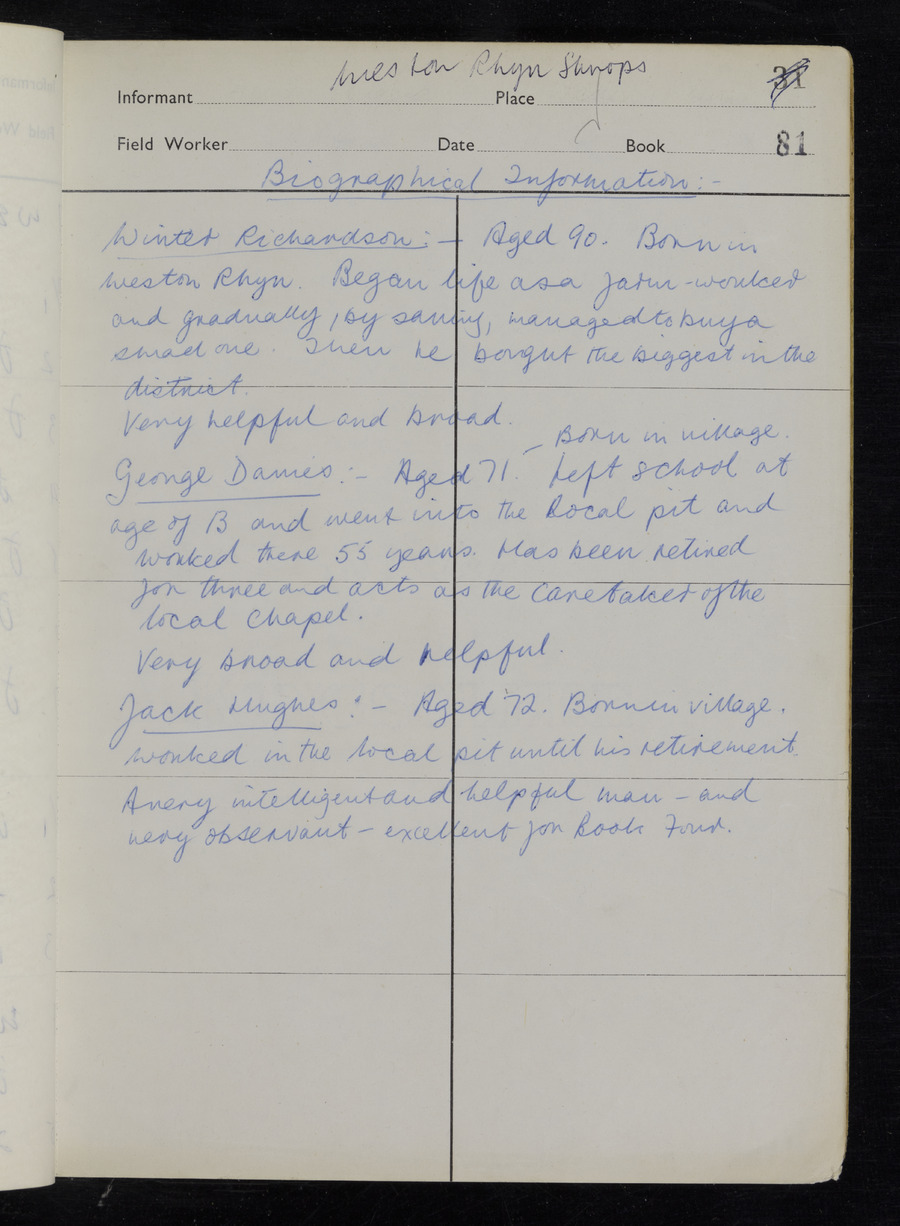 Weston Rhyn Shrops
Informant Place 31
Field Worker Date Book 81
Biographical Information:-
Winter Richardson:- Aged 90. Born in
Weston Rhyn. Began life as a farm-worker
and gradually, by saving, managed to buy a
small one. Then he bought the biggest in the
district.
Very helpful and broad.
- Born in village.
George Davies:- Aged 71. Left school at
age of 13 and went into the local pit and
worked there 55 years. Has been retired
for three and acts as the caretaker of the
local chapel.
Very broad and helpful.
Jack Hughes:- Aged 72. Born in village.
Worked in the local pit until his retirement.
A very intelligent and helpful man - and
very observant - excellent for Book Four.